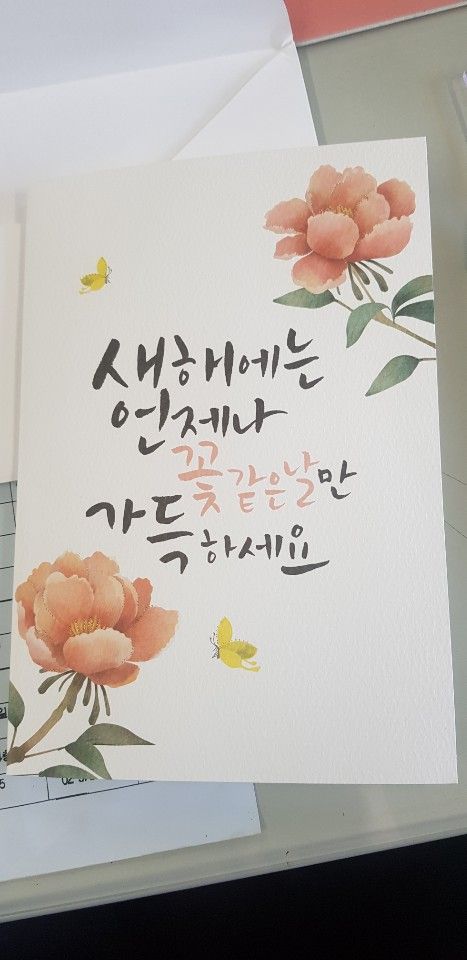 새해에는
언제나
꽃같은날만
가득하세요